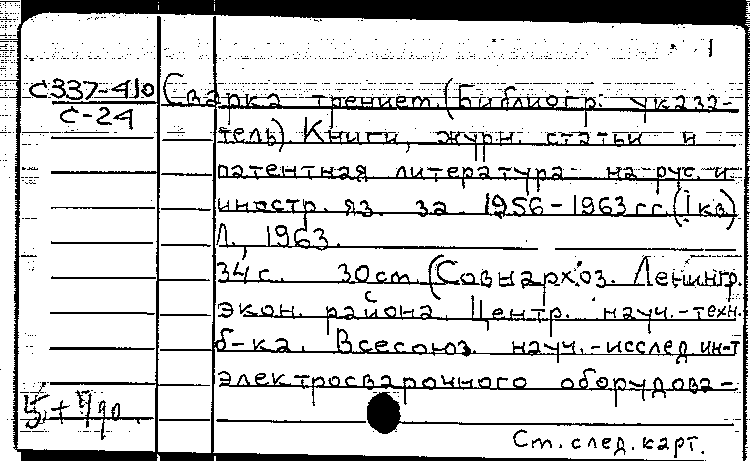 1
С337-410 Сварка трением. (Библиогр. указа-
С-24
тель). Книги, журн. статьи и
патентная литература на рус. и
иностр. яз. за 1956-1963 гг. (I кв)
Л., 1963.
34 с. 30 см. (Совнархоз. Ленингр.
экон. района. Центр. науч.-техн.
б-ка. Всесоюз. науч.-исслед. ин-т
электросварочного оборудова-
5 +
См. след. карт.